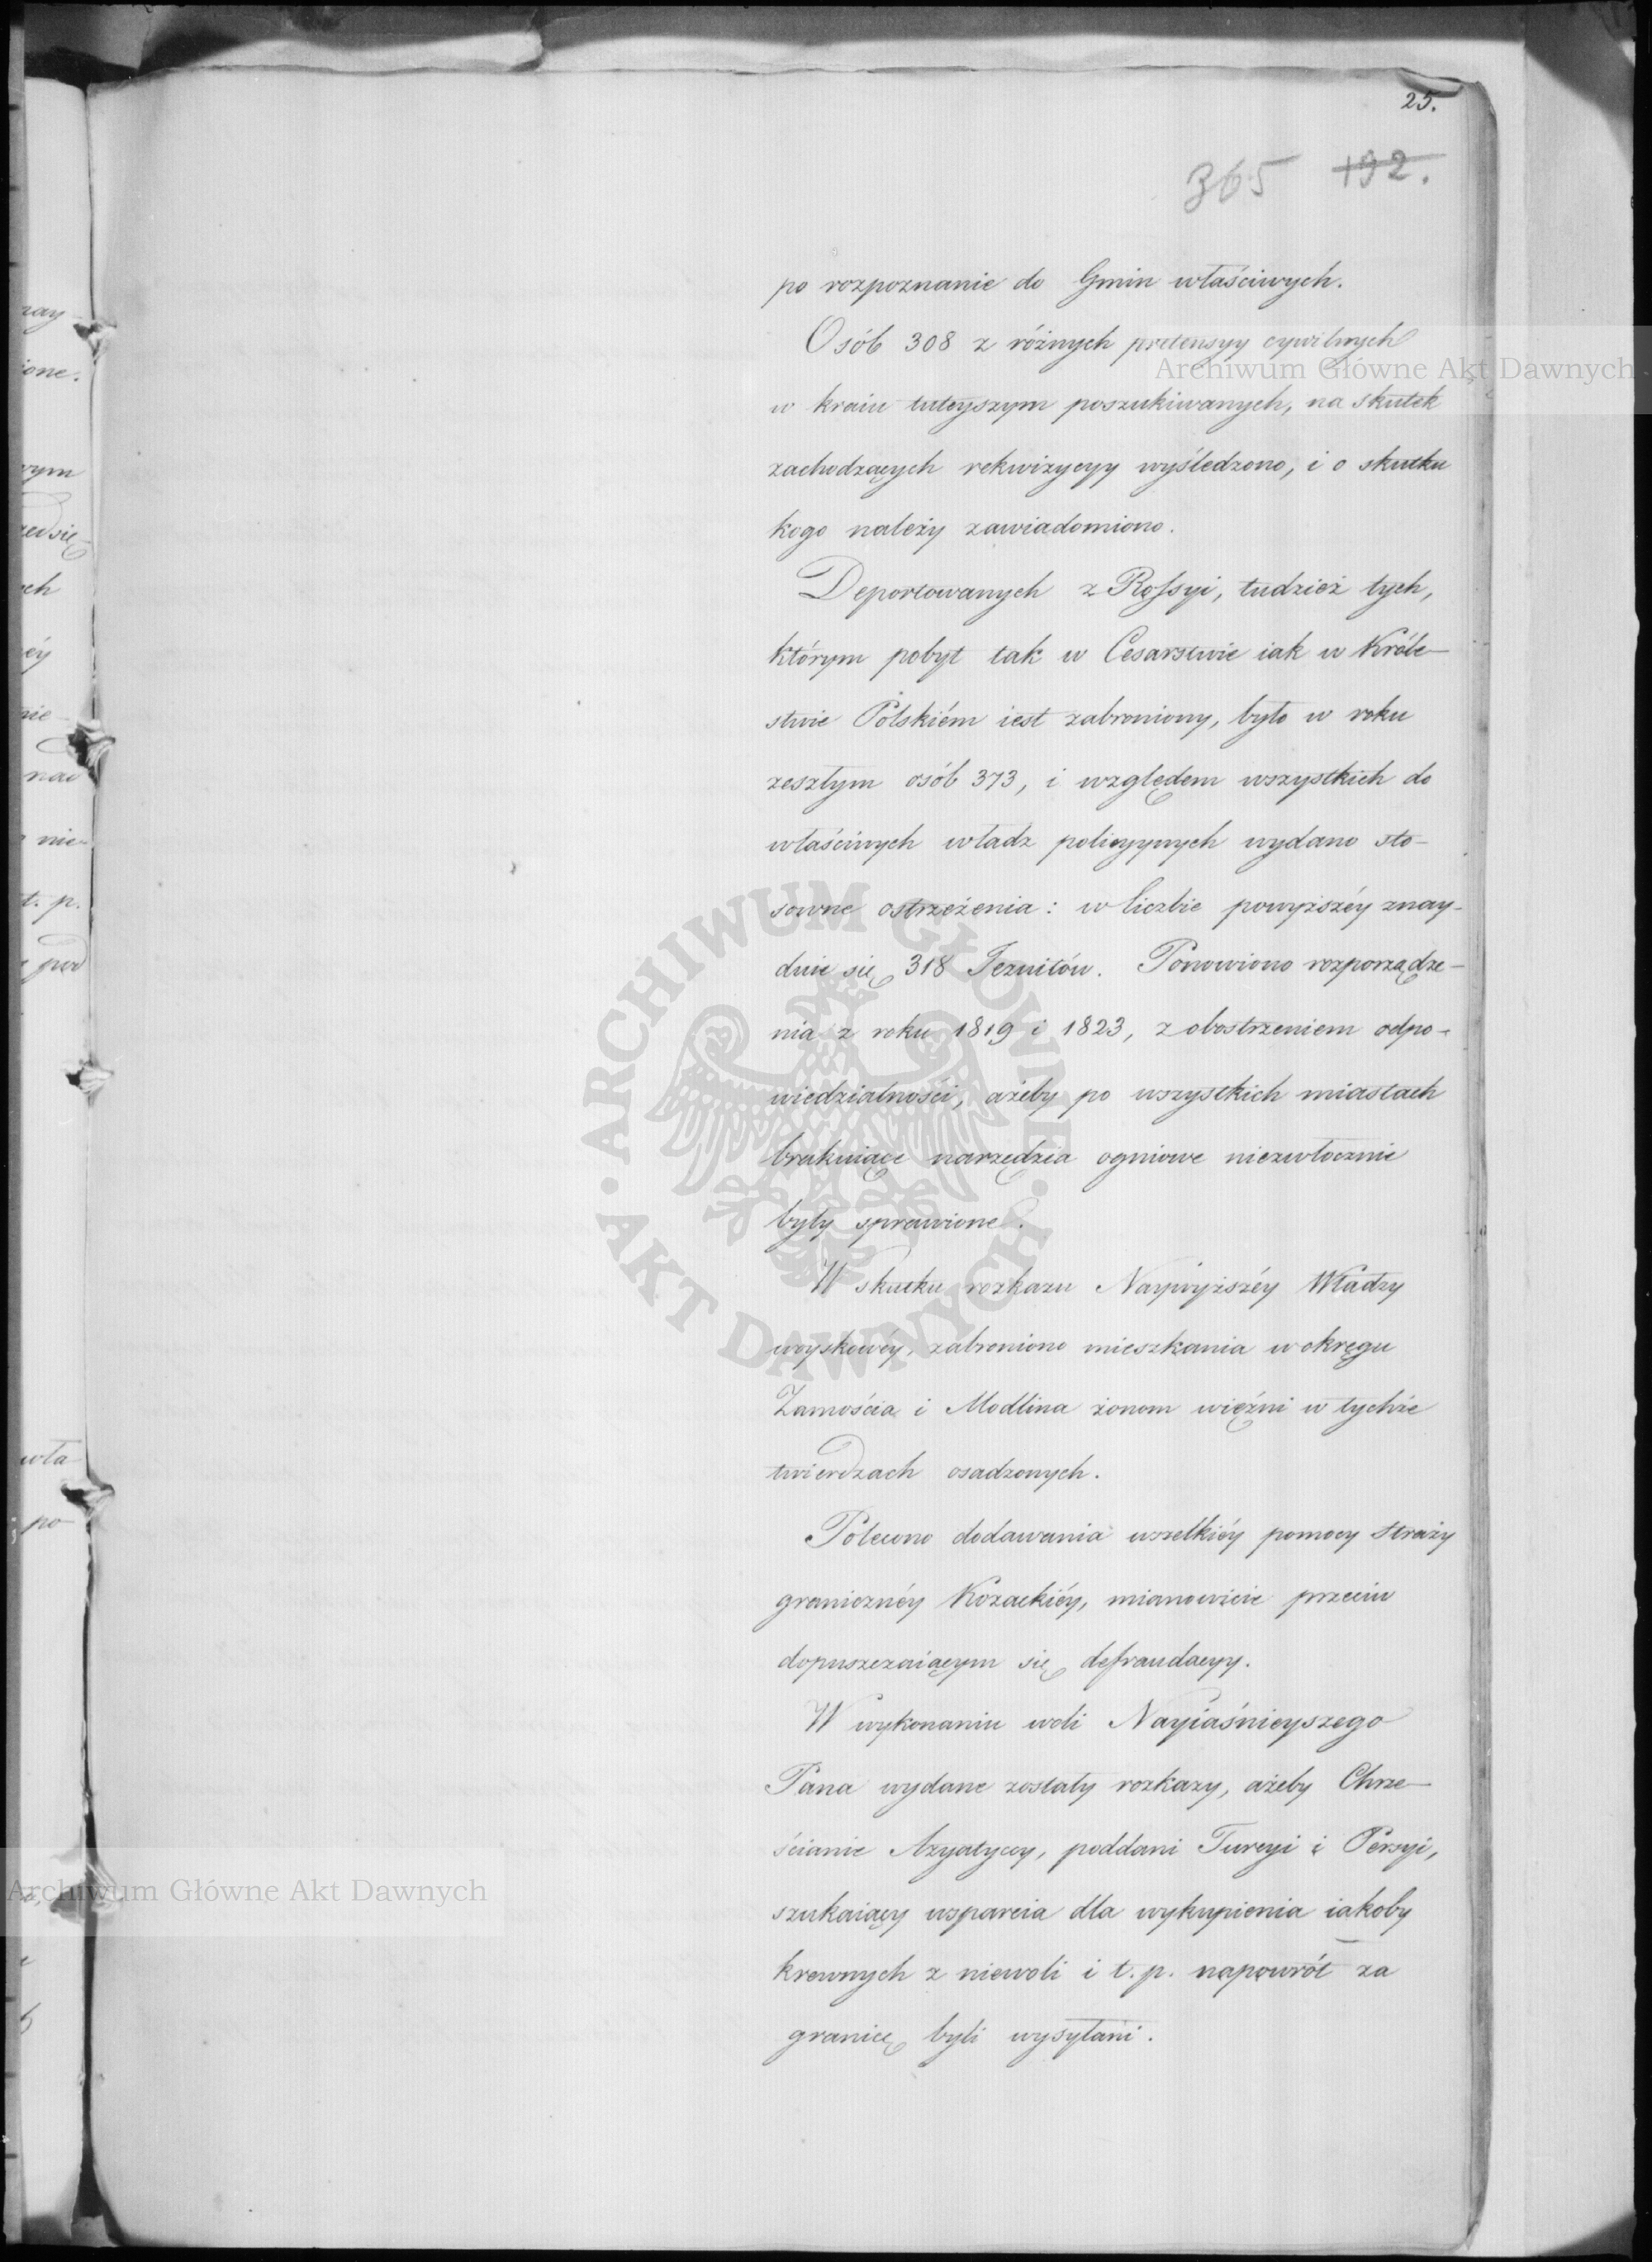 25.
365 192.
po rozpoznanie do Gmin właściwych.
Osób 308 z różnych pretensyy cywilnych
w kraiu tuteyszym poszukiwanych, na skutek
zachodzących rekwizycyy wyśledzono, i o skutku
kogo należy zawiadomiono.
Deportowanych z Rossyi, tudzież tych,
którym pobyt tak w Cesarstwie iak w Króle-
stwie Polskiém iest zabroniony, było w roku
zeszłym osób 373, i względem wszystkich do
właściwych władz policyynych wydano sto-
sowne ostrzeżenia: w liczbie powyższéy znay-
duie się 318 Jezuitów. Ponowiono rozporządze-
nia z roku 1819 i 1823, z obostrzeniem odpo-
wiedzialności, ażeby po wszystkich miastach
brakuiące narzędzia ogniowe niezwłocznie
były sprawione.
W skutku rozkazu Naywyższéy Władzy
woyskowéy, zabroniono mieszkania w okręgu
Zamościa i Modlina żonom więźni w tychże
twierdzach osadzonych.
Polecono dodawania wszelkiéy pomocy Straży
granicznéy Kozackiéy, mianowicie przeciw
dopuszczaiącym się defraudacyy.
W wykonaniu woli Nayiaśnieyszego
Pana wydane zostały rozkazy, ażeby Chrze-
ścianie Azyatyccy, poddani Turcyi i Persyi,
szukaiący wsparcia dla wykupienia iakoby
krewnych z niewoli i t. p. napowrót za
granicę byli wysyłani.
Archiwum Główne Akt Dawnych
ARCHIWUM GŁÓWNE · AKT DAWNYCH ·
Archiwum Główne Akt Dawnych